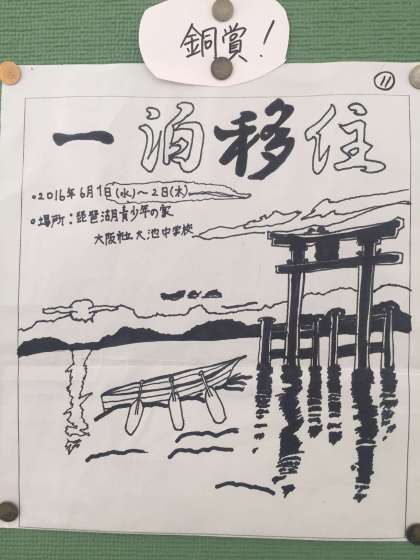 銅賞!
⑪
一泊移住
•2016年6月1日(水)〜2日(木)
•場所:琵琶湖青少年の家
大阪市立大池中学校